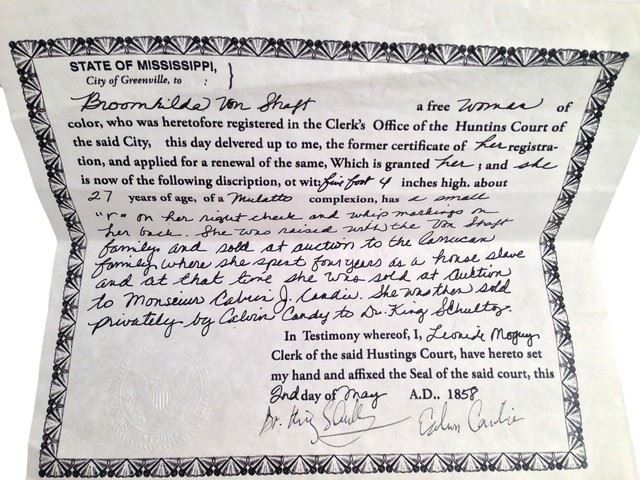 STATE OF MISSISSIPPI,
City of Greenville, to : }
Broomhilda Von Shaft a free woman of
color, who was heretofore registered in the Clerk's Office of the Huntins Court of
the said City, this day delvered up to me, the former certificate of her registra-
tion, and applied for a renewal of the same, Which is granted her; and she
is now of the following discription, ot wit; five foot 4 inches high. about
27 years of age, of a Mulatto complexion, has a small
"r" on her right cheek and whip markings on
her back. She was raised with the Von Shaft
family and sold at auction to the Carrucan
family where she spent four years as a house slave
and at that time she was sold at Auction
to Monsieur Calvin J. Candie. She was then sold
privately by Calvin Candy to Dr. King Schultz.
In Testimony whereof, I, Leonide Moguy
Clerk of the said Hustings Court, have hereto set
my hand and affixed the Seal of the said court, this
2nd day of May A.D.. 1858
Dr. King Schultz Calvin Candie